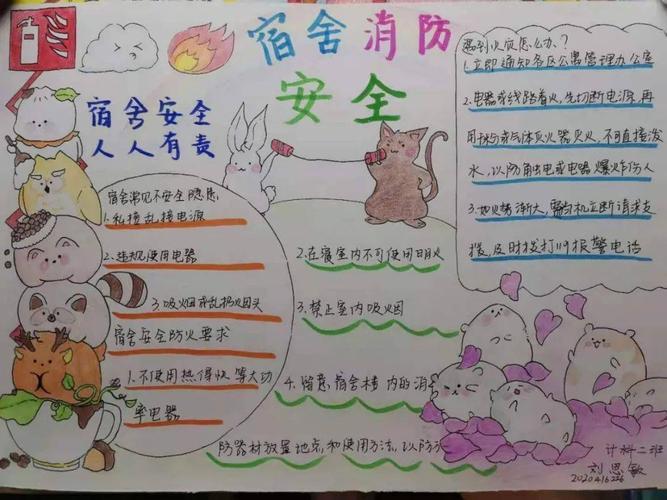 宿舍消防
安全
宿舍安全
人人有责
宿舍常见不安全隐患:
1.私接乱接电源
2.违规使用电器
3.吸烟或乱扔烟头
宿舍安全防火要求
1.不使用热得快等大功
率电器
2.在寝室内不可使用明火
3.禁止室内吸烟
4.留意宿舍楼内的消
防器材放置地点和使用方法,以防万
遇到火灾怎么办?
1.立即通知各区公寓管理办公室
2.电器或线路着火,先切断电源,再
用干粉或气体灭火器灭火,不可直接泼
水,以防触电或电器爆炸伤人
3.如火势渐大,需 机立断请求支
援,及时拨打119报警电话
计科二班
刘思敏